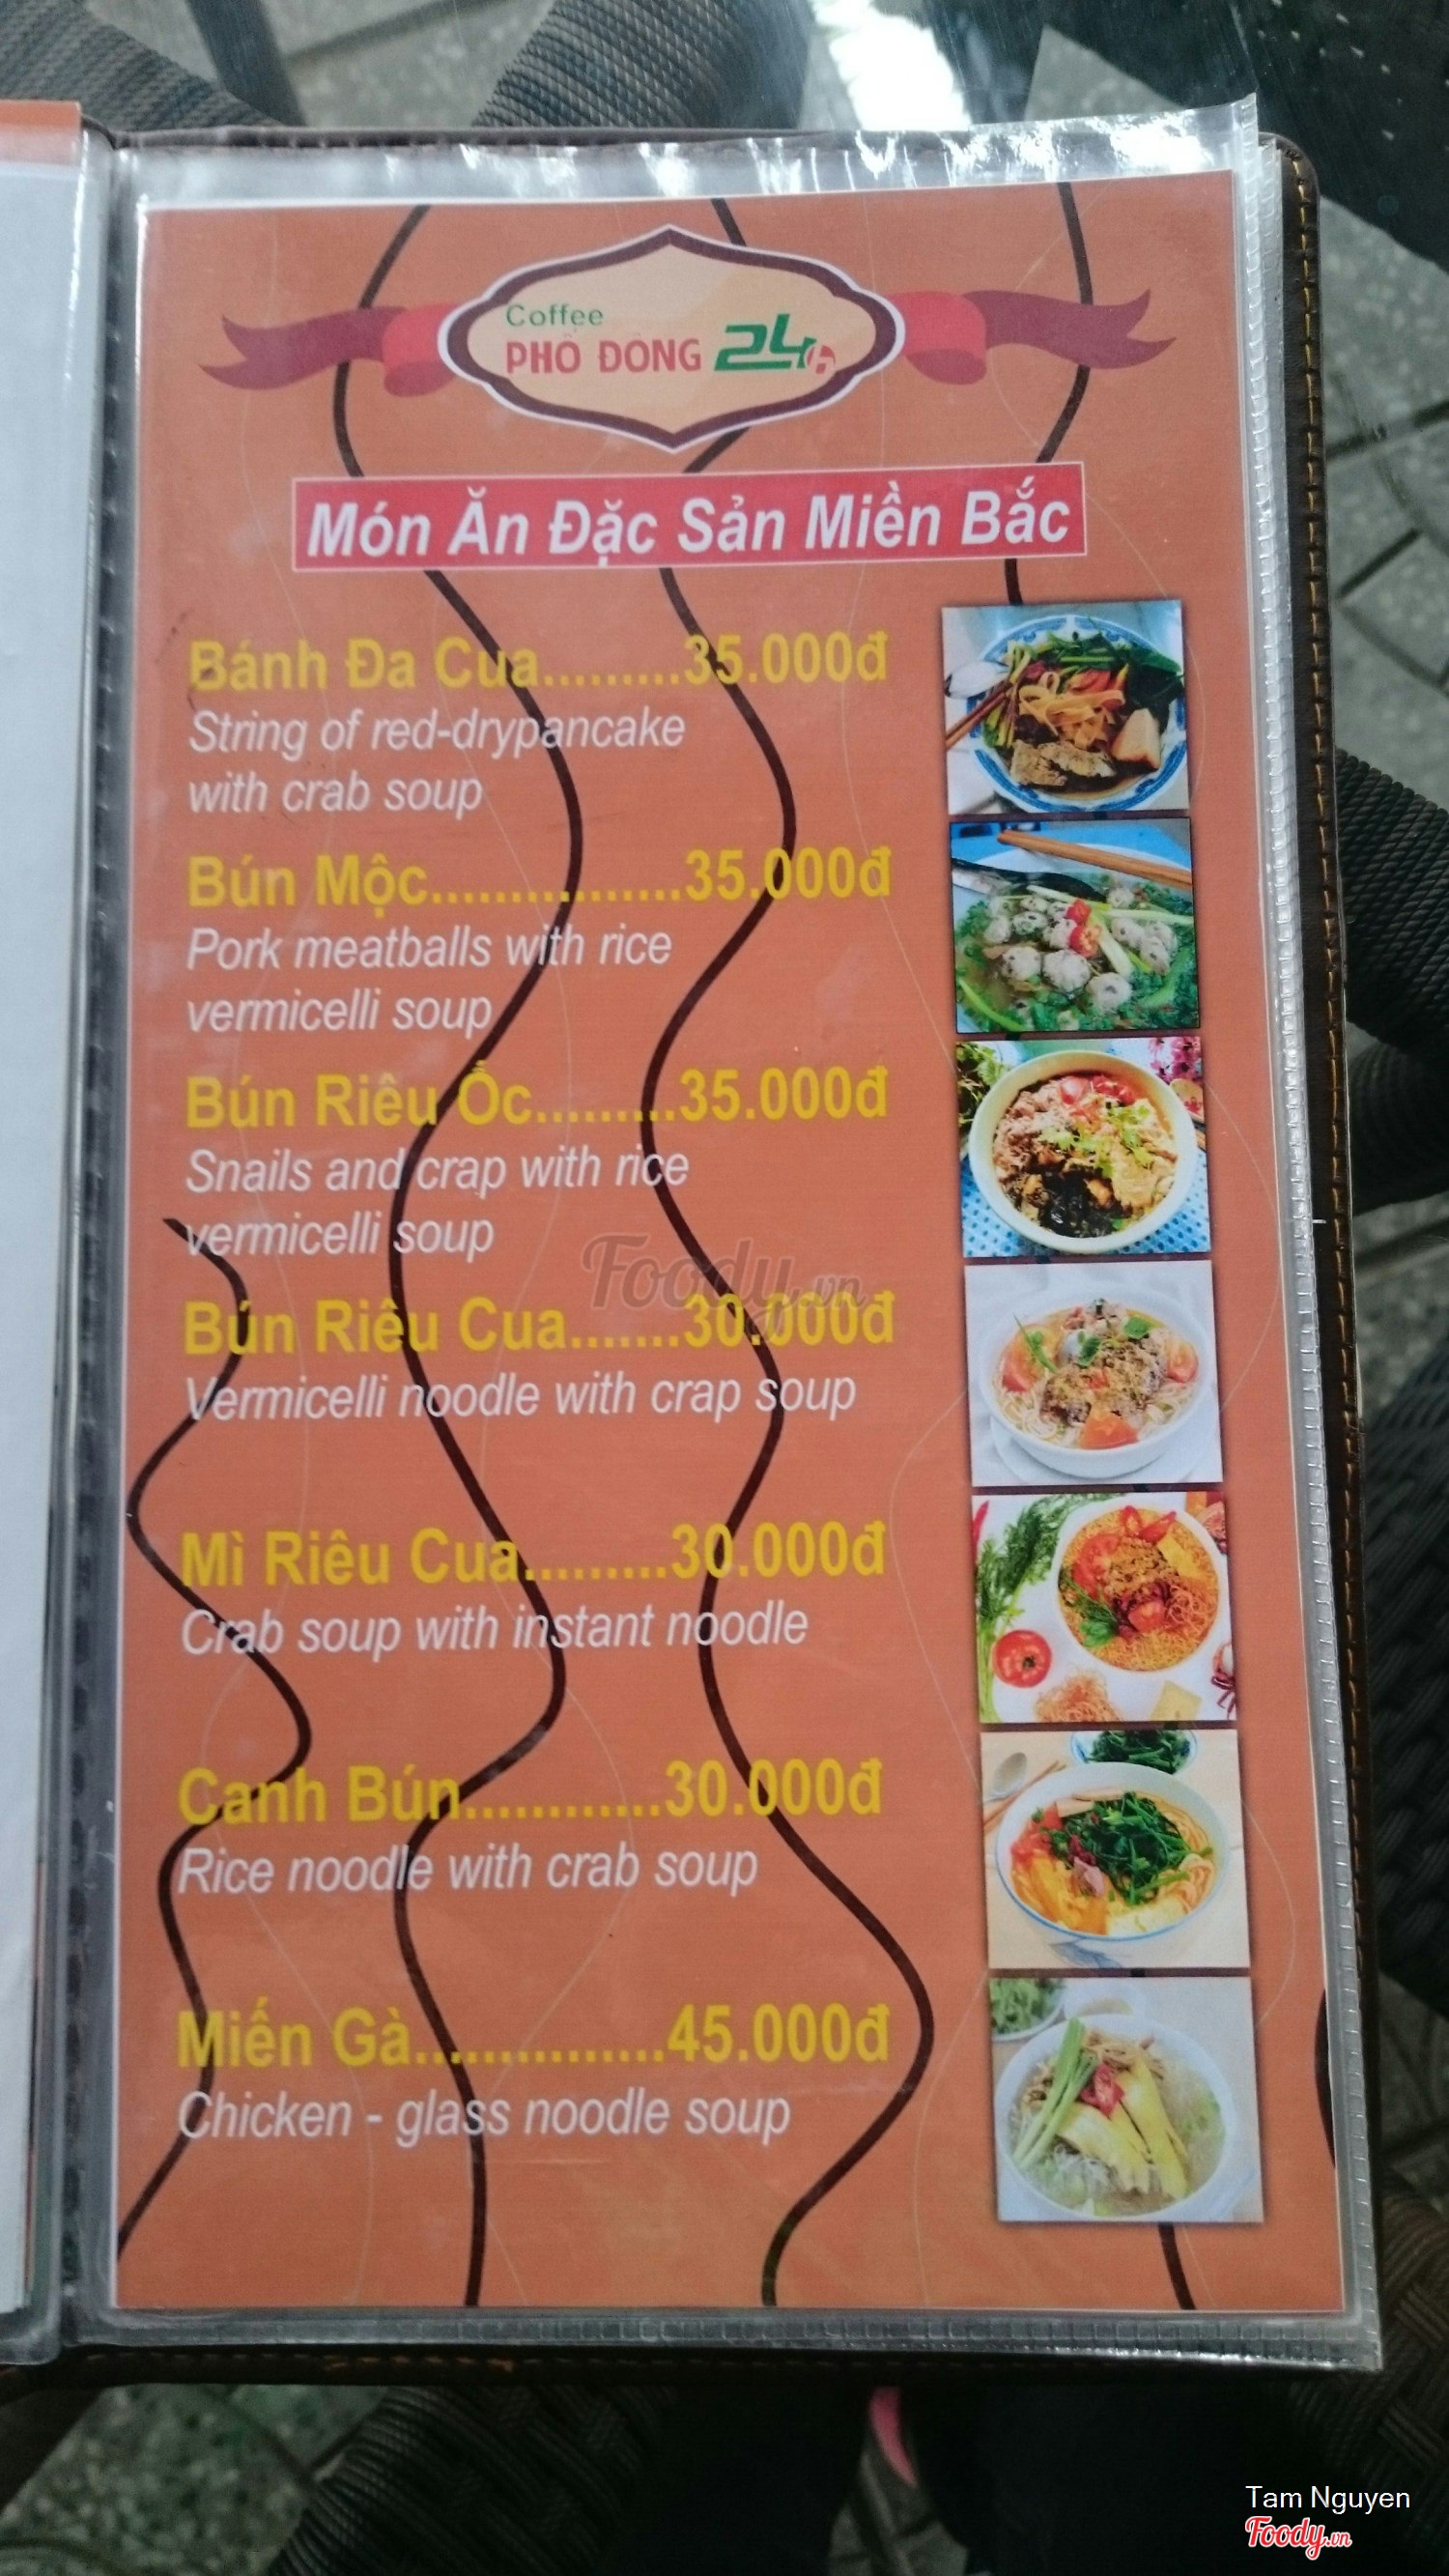 Coffee
PHỐ ĐÔNG 24h
Món Ăn Đặc Sản Miền Bắc
Bánh Đa Cua.........35.000đ
String of red-drypancake
with crab soup
Bún Mộc................35.000đ
Pork meatballs with rice
vermicelli soup
Bún Riêu Ốc.........35.000đ
Snails and crap with rice
vermicelli soup
Foody.vn
Bún Riêu Cua.......30.000đ
Vermicelli noodle with crap soup
Mì Riêu Cua.........30.000đ
Crab soup with instant noodle
Canh Bún............30.000đ
Rice noodle with crab soup
Miến Gà...............45.000đ
Chicken - glass noodle soup
Tam Nguyen
Foody.vn